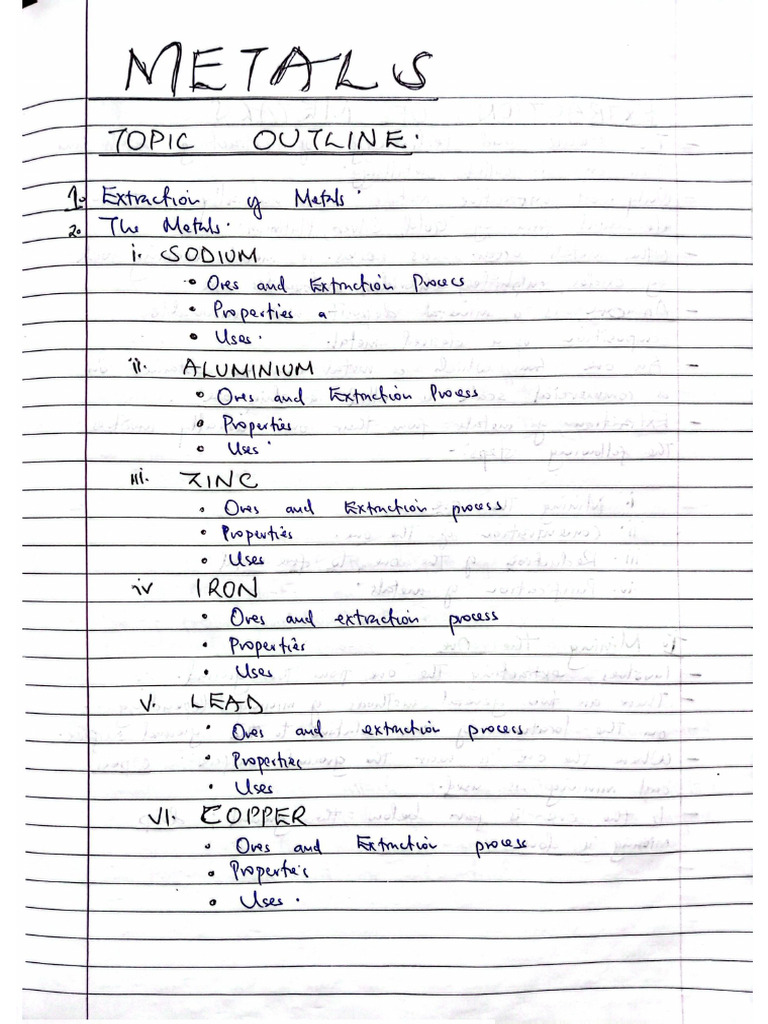 METALS
TOPIC OUTLINE.
1. Extraction of Metals.
2. The Metals.
i. SODIUM
• Ores and Extraction Process
• Properties a
• Uses.
ii. ALUMINIUM
• Ores and Extraction Process
• Properties
• Uses
iii. ZINC
• Ores and Extraction process
• Properties
• Uses
iv IRON
• Ores and extraction process
• Properties
• Uses
v. LEAD
• Ores and extraction process
• Properties
• Uses
VI. COPPER
• Ores and Extraction process
• Properties
• Uses.